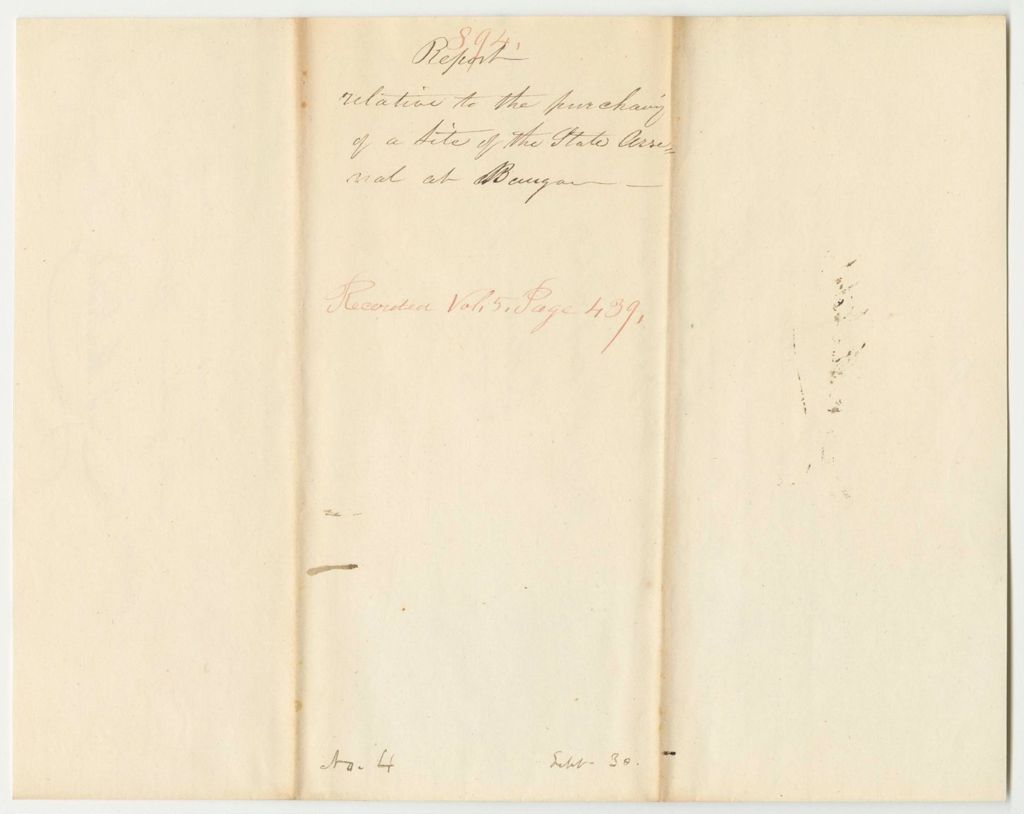 894.
Report
relative to the purchasing
of a Site of the State Arse=
nal at Bangor —
Recorded Vol. 5. Page 439.
No. 4
Sept 30.